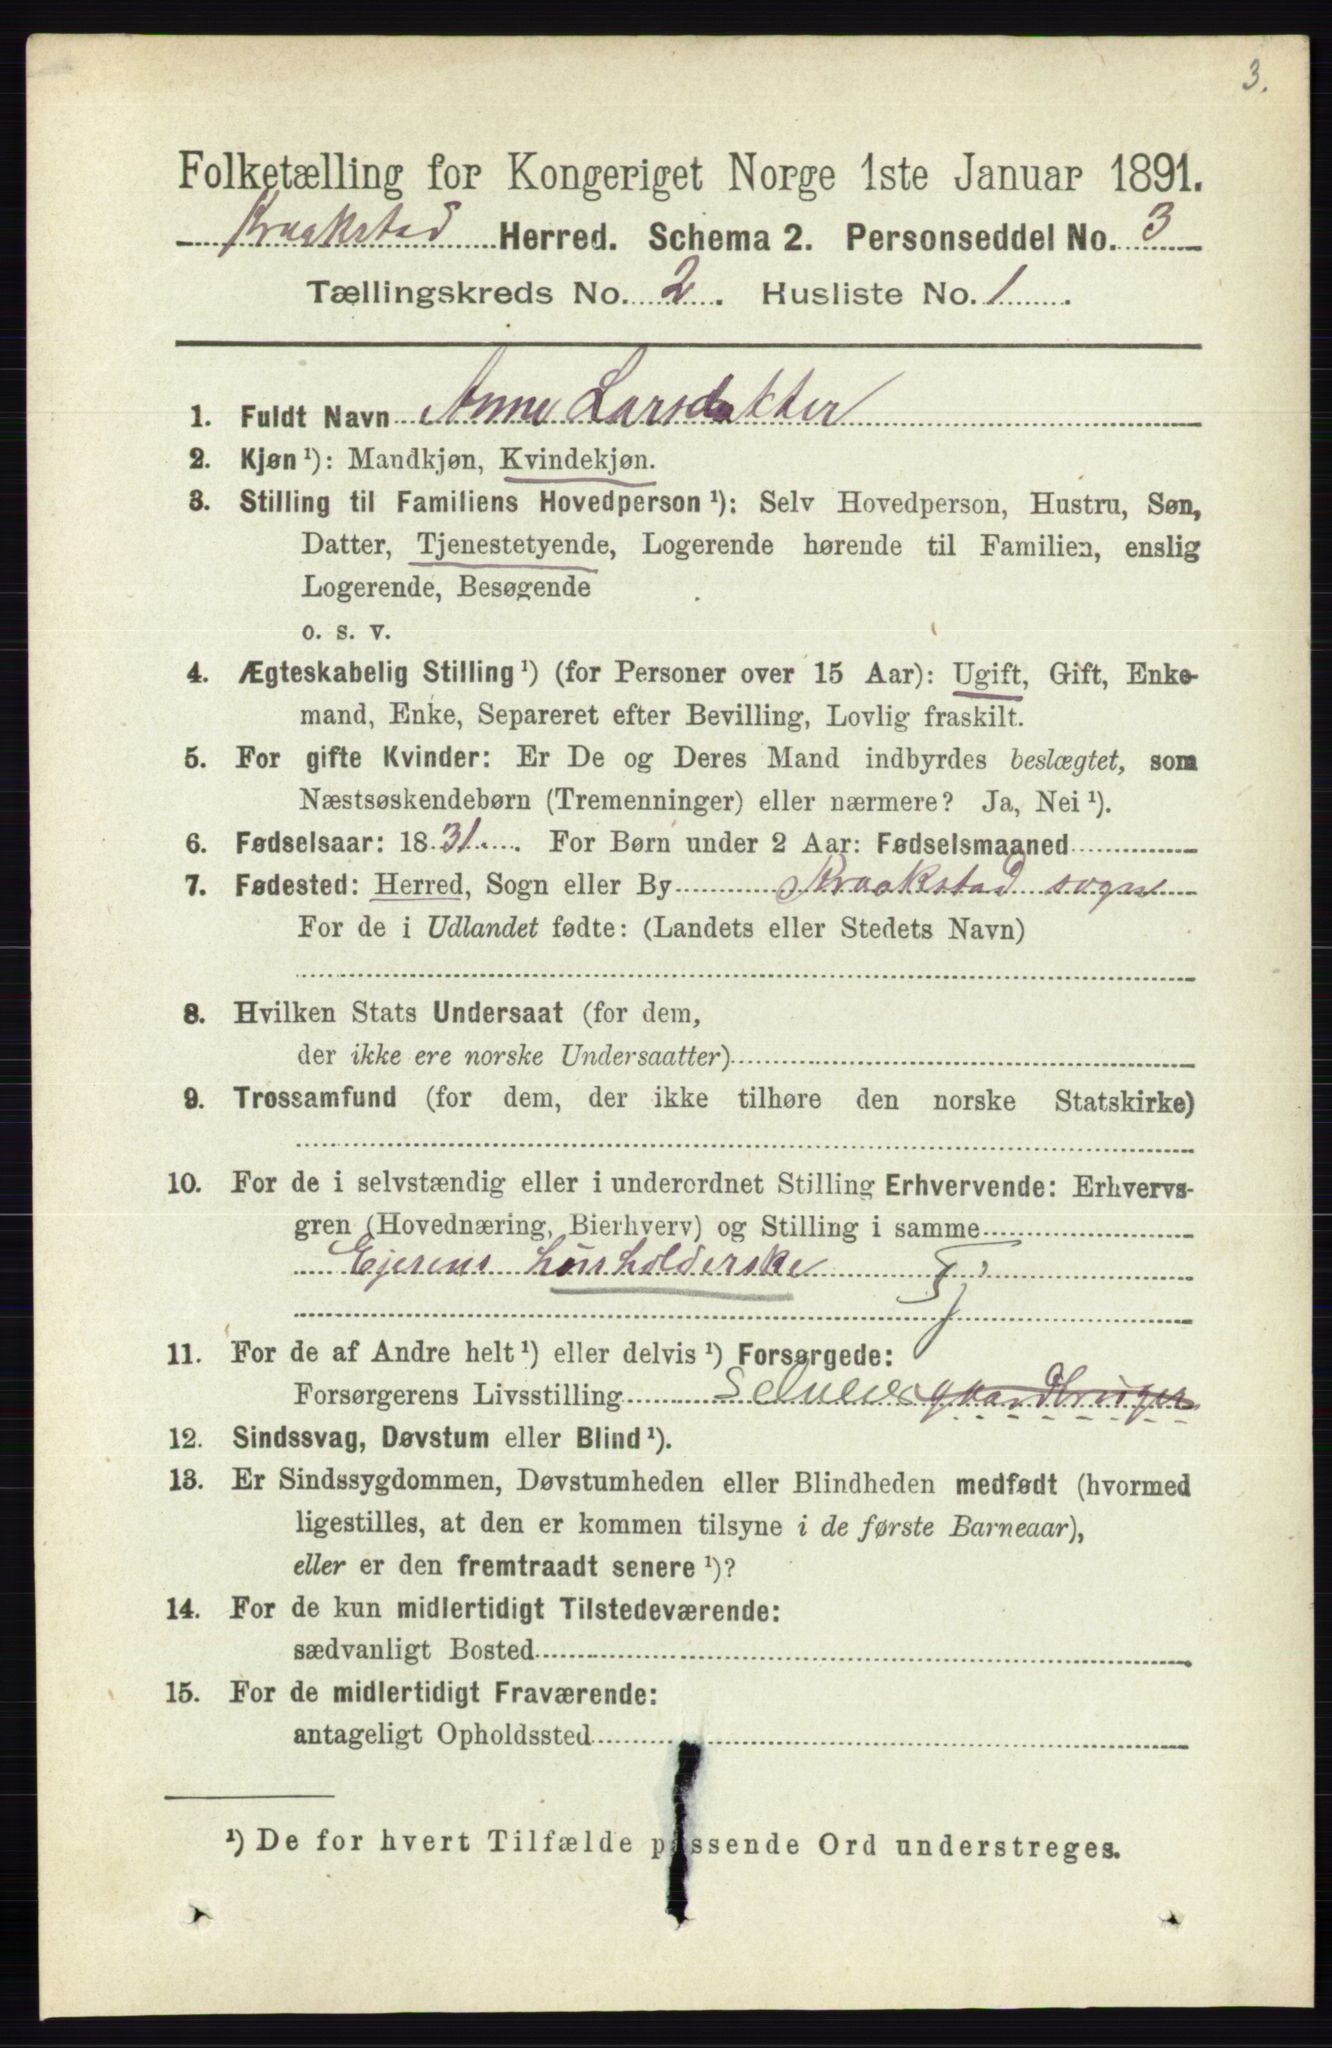 3.
Folketælling for Kongeriget Norge 1ste Januar 1891.
Kraakstad Herred. Schema 2. Personseddel No. 3
Tællingskreds No. 2. Husliste No. 1.
1. Fuldt Navn Anne Larsdatter
2. Kjøn ¹): Mandkjøn, Kvindekjøn.
3. Stilling til Familiens Hovedperson ¹): Selv Hovedperson, Hustru, Søn,
Datter, Tjenestetyende, Logerende hørende til Familien, enslig
Logerende, Besøgende
o. s. v.
4. Ægteskabelig Stilling ¹) (for Personer over 15 Aar): Ugift, Gift, Enke-
mand, Enke, Separeret efter Bevilling, Lovlig fraskilt.
5. For gifte Kvinder: Er De og Deres Mand indbyrdes beslægtet, som
Næstsøskendebørn (Tremenninger) eller nærmere? Ja, Nei ¹).
6. Fødselsaar: 1831. For Børn under 2 Aar: Fødselsmaaned
7. Fødested: Herred, Sogn eller By Kraakstad sogn
For de i Udlandet fødte: (Landets eller Stedets Navn)
8. Hvilken Stats Undersaat (for dem,
der ikke ere norske Undersaatter)
9. Trossamfund (for dem, der ikke tilhøre den norske Statskirke)
10. For de i selvstændig eller i underordnet Stilling Erhvervende: Erhvervs-
gren (Hovednæring, Bierhverv) og Stilling i samme
Ejerens husholderske Tj
11. For de af Andre helt ¹) eller delvis ¹) Forsørgede:
Forsørgerens Livsstilling gaardbruger
12. Sindssvag, Døvstum eller Blind ¹).
13. Er Sindssygdommen, Døvstumheden eller Blindheden medfødt (hvormed
ligestilles, at den er kommen tilsyne i de første Barneaar),
eller er den fremtraadt senere ¹)?
14. For de kun midlertidigt Tilstedeværende:
sædvanligt Bosted
15. For de midlertidigt Fraværende:
antageligt Opholdssted
¹) De for hvert Tilfælde passende Ord understreges.